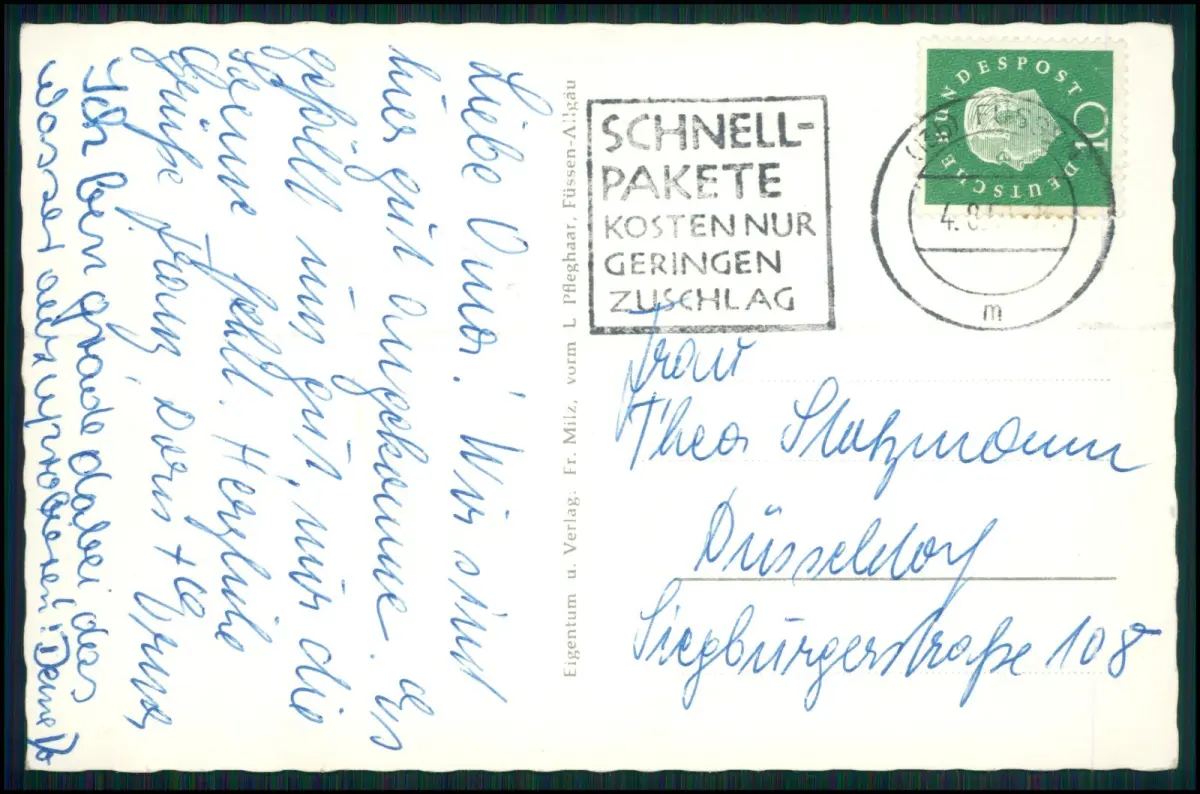 Liebe Oma! Wir sind
hier gut angekomme. es
gefällt uns gut, nur die
Sonne fehlt. Herzliche
Grüße Franz Doris +
Ich bin grade dabei das
Wasser auszuprobieren! Deine
Eigentum u. Verlag: Fr. Milz, vorm L Pfleghaar, Füssen-Allgäu
SCHNELL-
PAKETE
KOSTEN NUR
GERINGEN
ZUSCHLAG
DEUTSCHE BUNDESPOST
10
FÜSSEN
4. 8.
m
Frau
Thea Stutzmann
Düsseldorf
Siegburgerstraße 108